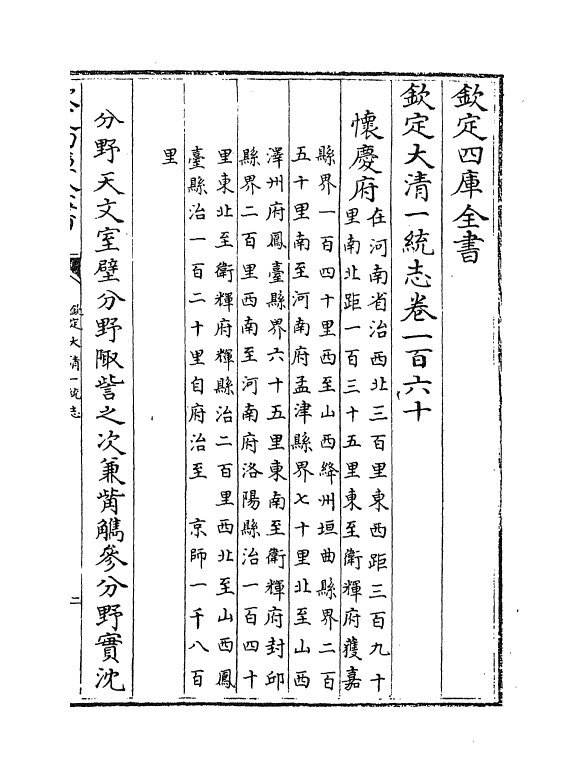 欽定四庫全書
欽定大清一統志卷一百六十
懷慶府
在河南省治西北三百里東西距三百九十
里南北距一百三十五里東至衛輝府獲嘉
縣界一百四十里西至山西絳州垣曲縣界二百
五十里南至河南府孟津縣界七十里北至山西
澤州府鳳臺縣界六十五里東南至衛輝府封邱
縣界二百里西南至河南府洛陽縣治一百四十
里東北至衛輝府輝縣治二百里西北至山西鳳
臺縣治一百二十里自府治至 京師一千八百
里
分野天文室壁分野陬訾之次兼觜觿參分野實沈
欽定大清一統志
二